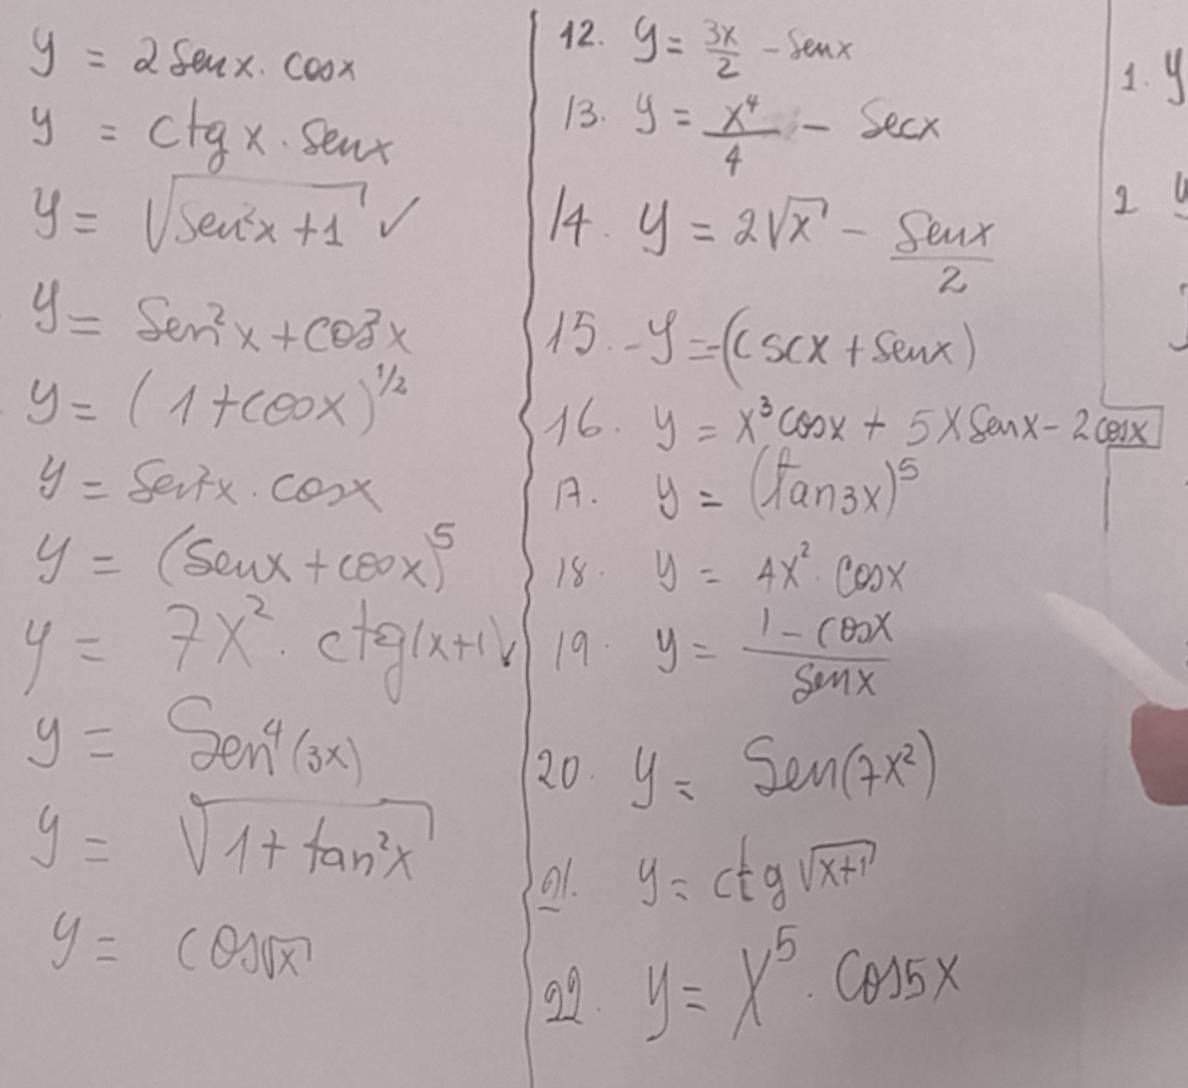 y = 2 Senx . cosx
y = ctg x . Senx
y = √(Sen²x + 1) ✓
y = Sen²x + cos²x
y = (1 + cosx)^1/2
y = Sen²x . cosx
y = (Senx + cosx)^5
y = 7x² . ctg(x+1) ✓
y = Sen⁴(3x)
y = √(1 + tan²x)
y = cos√x
12. y = 3x/2 - Senx
13. y = x⁴/4 - Secx
14. y = 2√x - Senx/2
15. -y = -(cscx + Senx)
16. y = x³cosx + 5xSenx - 2cosx
17. y = (tan3x)^5
18. y = 4x² . cosx
19. y = 1 - cosx/Senx
20. y = Sen(7x²)
21. y = ctg √(x+1)
22. y = x⁵ . cos5x
1. y
2 y